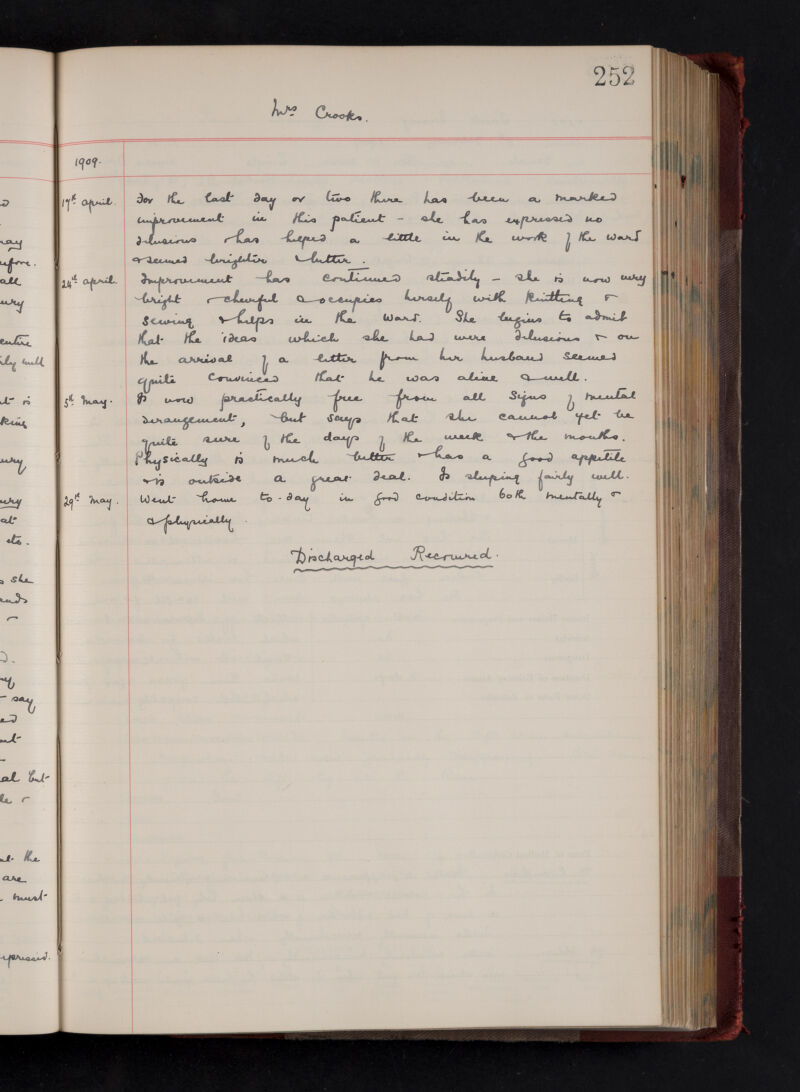 252
Mrs Crooks.
1909.
17th April. For the last day or two there has been a marked
improvement in this patient - she has expressed no
delusions & has helped a little in the work of the ward
& seemed brighter & better.
24th April. Improvement has continued steadily - she is now very
bright & cheerful & occupies herself with knitting &
sewing & helps in the ward. She begins to admit
that the ideas which she had were delusions & on
the arrival of a letter from her husband seemed
quite convinced that he was alive & well.
5th May. Is now practically free from all signs of mental
derangement, but says that she cannot yet be
quite sure of the days of the week & the months.
Physically is much better & has a good appetite
& is outside a great deal. Is sleeping fairly well.
29th May. Went home to-day in good condition both mentally &
& physically.
Discharged Recovered.